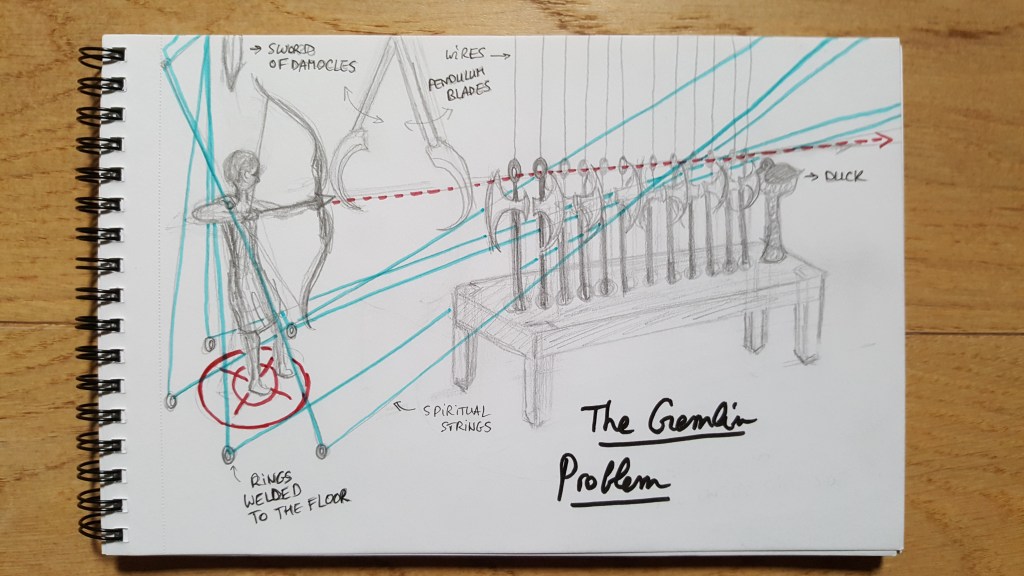 SWORD
OF DAMOCLES
WIRES
PENDULUM
BLADES
DUCK
SPIRITUAL
STRINGS
RINGS
WELDED
TO THE FLOOR
The Gremlin
Problem